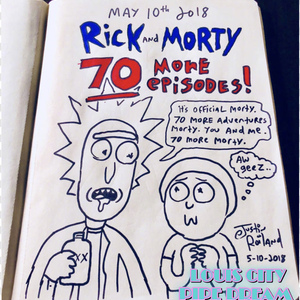 MAY 10th 2018
RICK AND MORTY
70 MORE EPISODES!
It's official Morty.
70 more adventures
Morty. You and me.
70 more Morty.
AW
geez..
Justin
Roiland
5-10-2018
LOUIS CITY
PIPE DREAM